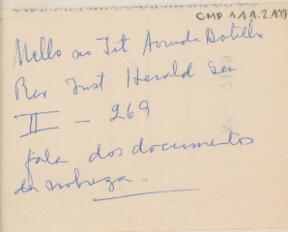 CMP 1.1.1.2.119
Mello no Tit Arruda Botelho
Rev. Inst. Herald Gen
II - 269
fala dos documentos
da nobreza.